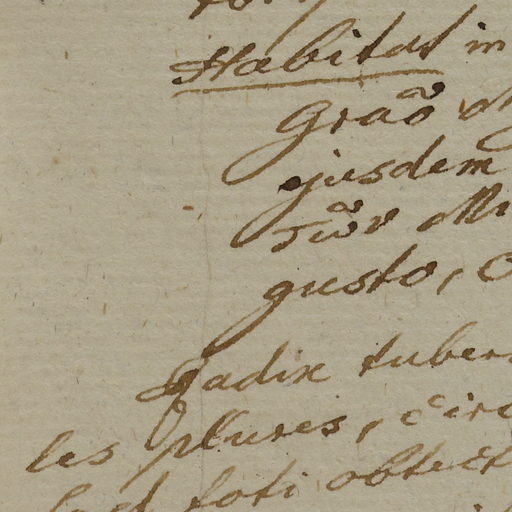 Habitat in
Graõ
ejusdem
gusto,
Radix tubero
les plures, circ
toti obtect